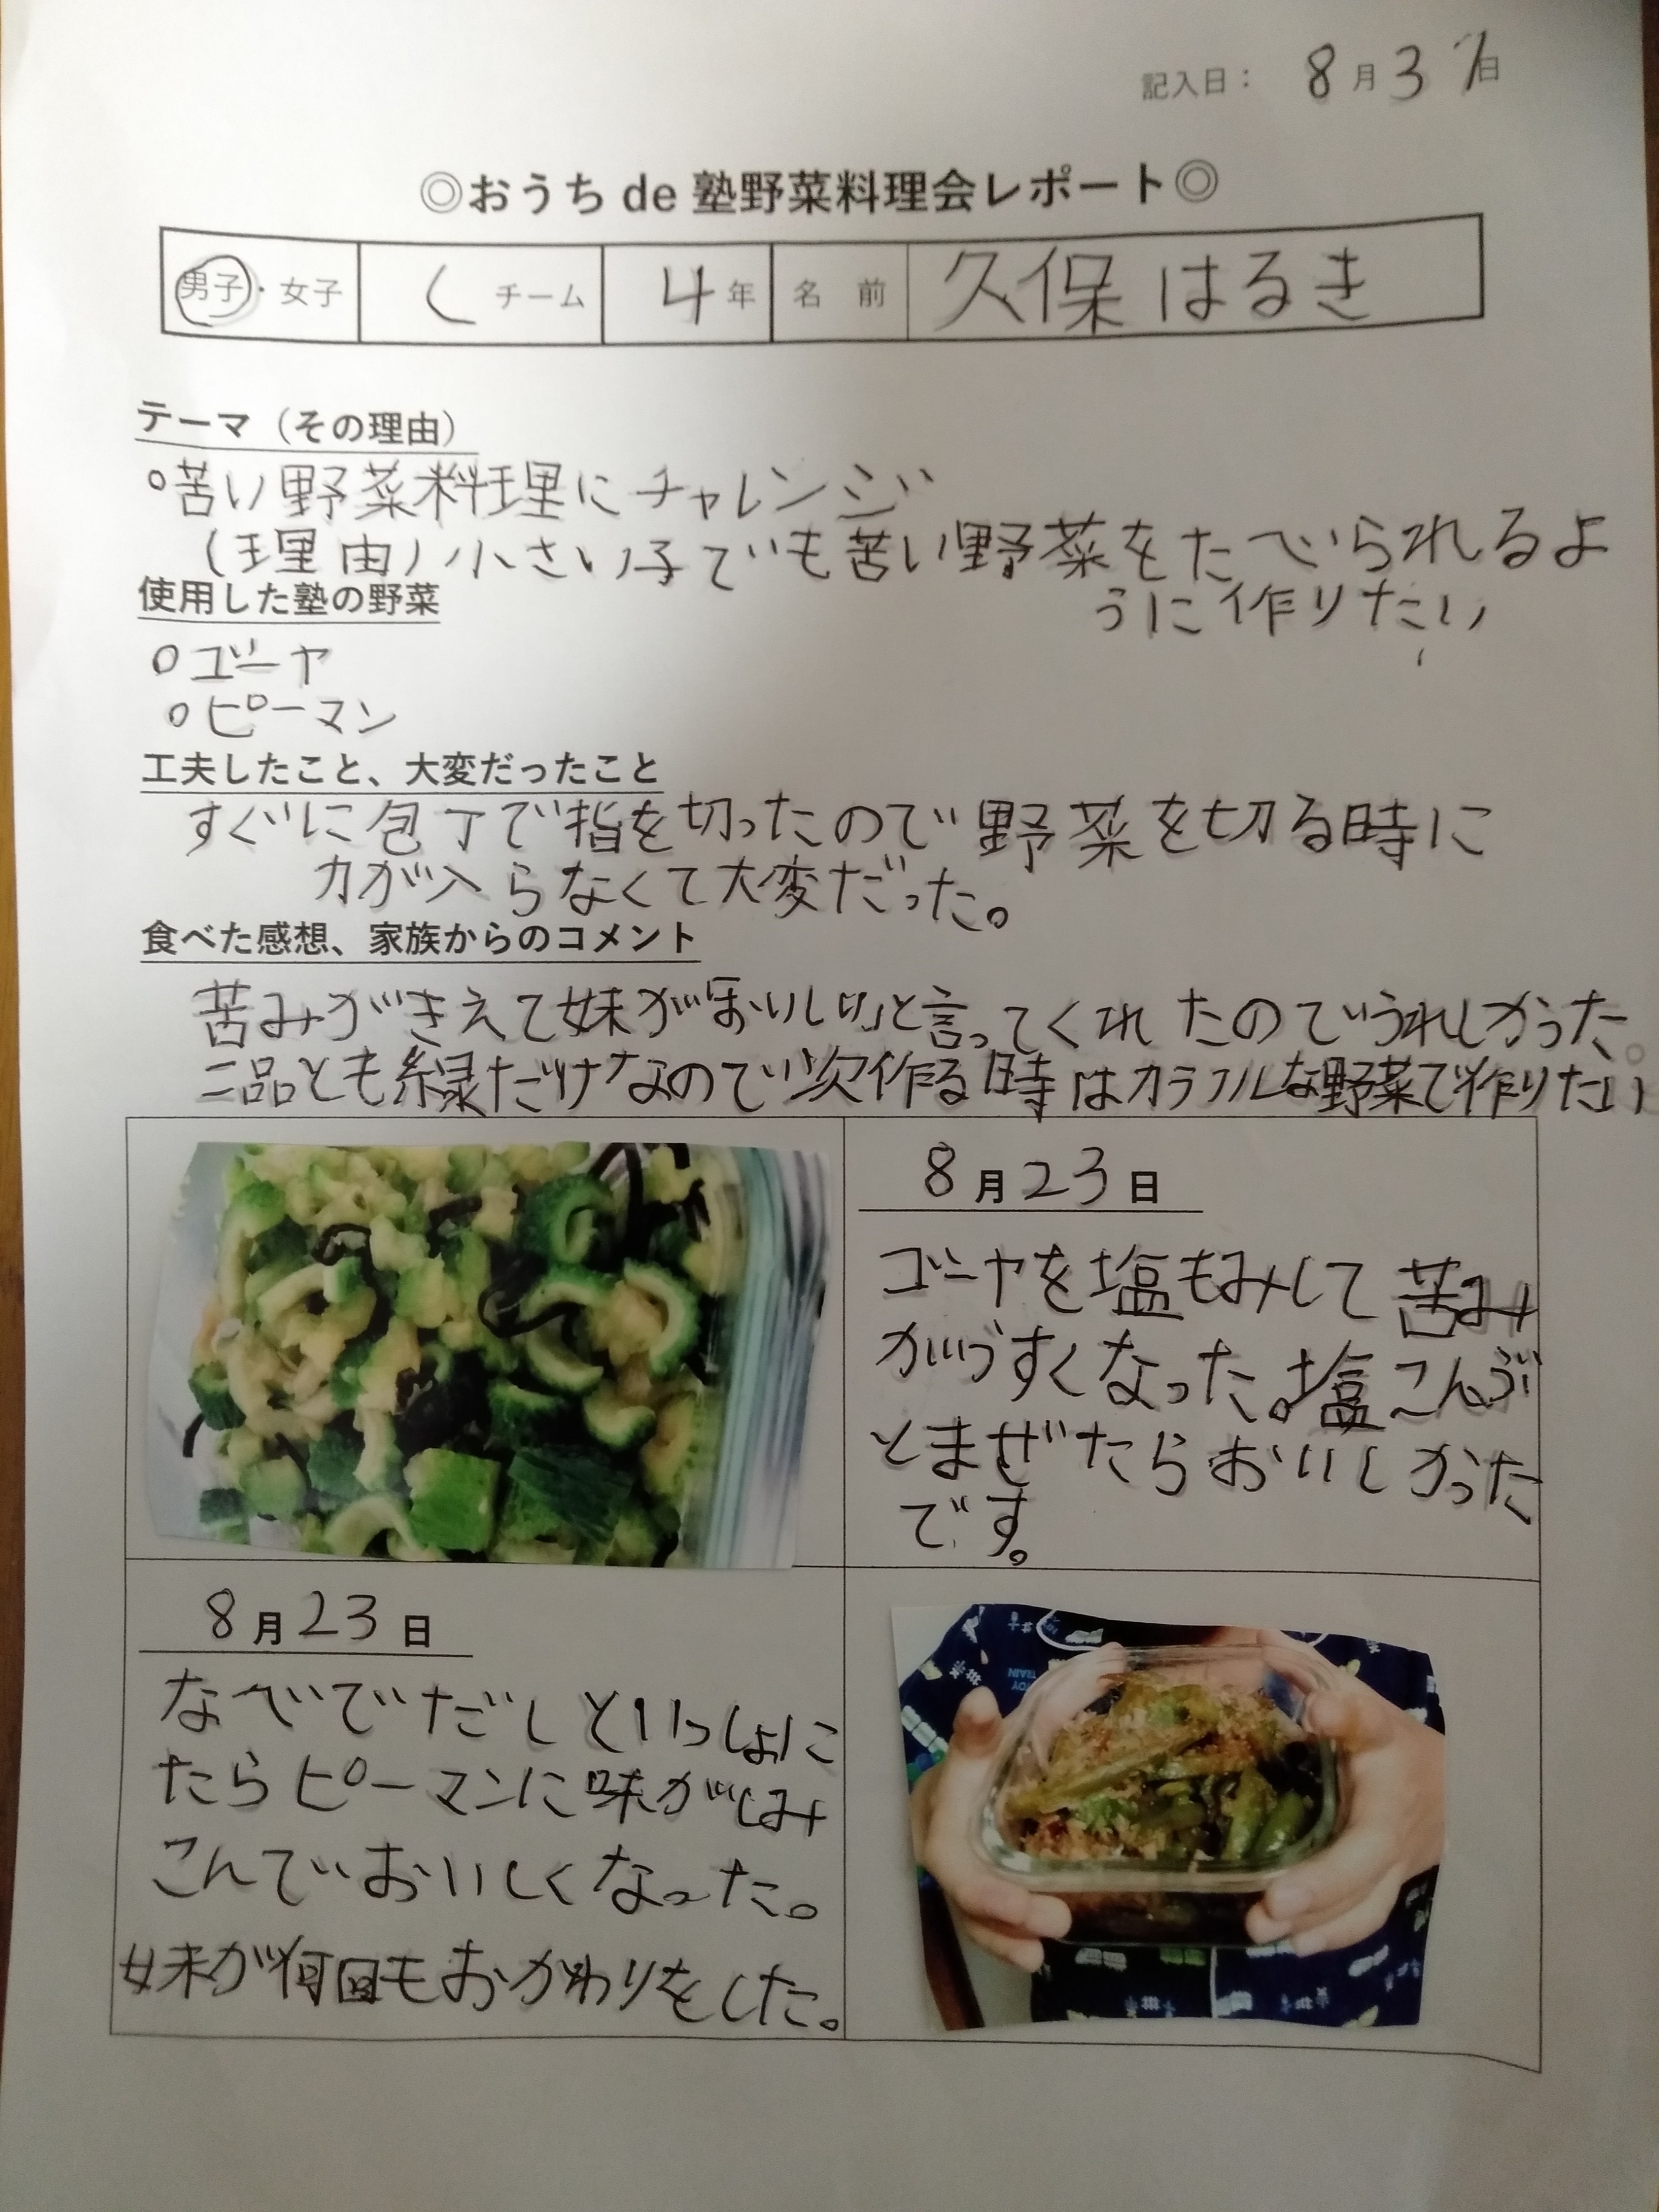 記入日： 8月31日
◎おうち de 塾野菜料理会レポート◎
男子・女子 Cチーム 4年 名前 久保はるき
テーマ（その理由）
○苦い野菜料理にチャレンジ
（理由）小さい子でも苦い野菜をたべられるよ
うに作りたい
使用した塾の野菜
○ゴーヤ
○ピーマン
工夫したこと、大変だったこと
すぐに包丁で指を切ったので野菜を切る時に
力が入らなくて大変だった。
食べた感想、家族からのコメント
苦みがきえて妹が「おいしい」と言ってくれたのでうれしかった。
二品とも緑だけなので次作る時はカラフルな野菜で作りたい
8月23日
ゴーヤを塩もみして苦み
がうすくなった。塩こんぶ
とまぜたらおいしかった
です。
8月23日
なべでだしといっしょに
たらピーマンに味がしみ
こんでいおいしくなった。
妹が何回もおかわりをした。